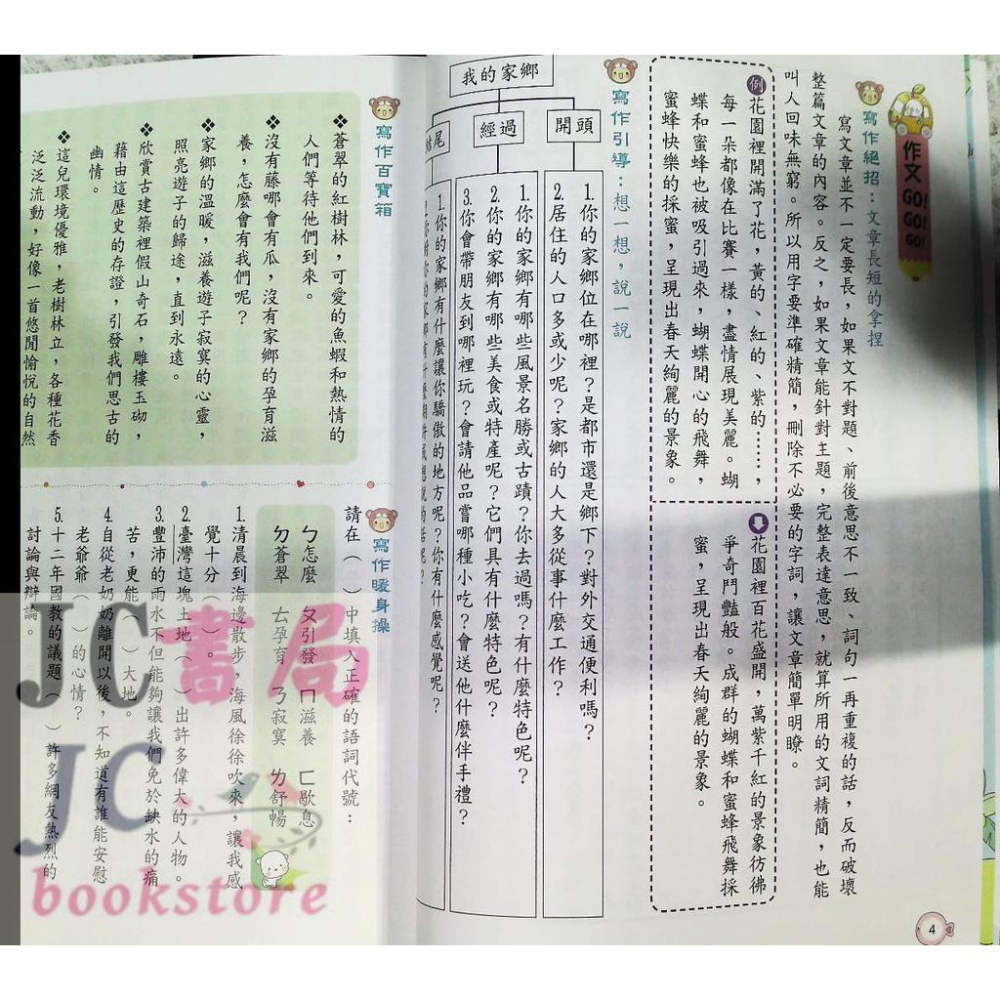 作文 GO! GO! GO!
寫作絕招：文章長短的拿捏
寫文章並不一定要長，如果文不對題、前後意思不一致、詞句一再重複的話，反而破壞
整篇文章的內容。反之，如果文章能針對主題，完整表達意思，就算所用的文詞精簡，也能
叫人回味無窮。所以用字要準確精簡，刪除不必要的字詞，讓文章簡單明瞭。
例花園裡開滿了花，黃的、紅的、紫的……，
每一朵都像在比賽一樣，盡情展現美麗。蝴
蝶和蜜蜂也被吸引過來，蝴蝶開心的飛舞，
蜜蜂快樂的採蜜，呈現出春天絢麗的景象。
花園裡百花盛開，萬紫千紅的景象彷彿
爭奇鬥豔般。成群的蝴蝶和蜜蜂飛舞採
蜜，呈現出春天絢麗的景象。
寫作引導：想一想，說一說
我的家鄉
開頭
1.你的家鄉位在哪裡？是都市還是鄉下？對外交通便利嗎？
2.居住的人口多或少呢？家鄉的人大多從事什麼工作？
經過
1.你的家鄉有哪些風景名勝或古蹟？你去過嗎？有什麼特色呢？
2.你的家鄉有哪些美食或特產呢？它們具有什麼特色呢？
3.你會帶朋友到哪裡玩？會請他品嘗哪種小吃？會送他什麼伴手禮？
結尾
1.你的家鄉有什麼讓你驕傲的地方呢？你有什麼感覺呢？
4
寫作百寶箱
❖蒼翠的紅樹林，可愛的魚蝦和熱情的
人們等待他們到來。
❖沒有藤哪會有瓜，沒有家鄉的孕育滋
養，怎麼會有我們呢？
❖家鄉的溫暖，滋養遊子寂寞的心靈，
照亮遊子的歸途，直到永遠。
❖欣賞古建築裡假山奇石，雕樓玉砌，
藉由這歷史的存證，引發我們思古的
幽情。
❖這兒環境優雅，老樹林立，各種花香
泛泛流動，好像一首悠閒愉悅的自然
寫作暖身操
請在（ ）中填入正確的語詞代號：
ㄅ怎麼 ㄆ引發 ㄇ滋養 ㄈ歇息
ㄉ蒼翠 ㄊ孕育 ㄋ寂寞 ㄌ舒暢
1.清晨到海邊散步，海風徐徐吹來，讓我感
覺十分（ ）。
2.臺灣這塊土地（ ）出許多偉大的人物。
3.豐沛的雨水不但能夠讓我們免於缺水的痛
苦，更能（ ）大地。
4.自從老奶奶離開以後，不知道有誰能安慰
老爺爺（ ）的心情？
5.十二年國教的議題（ ）許多網友熱烈的
討論與辯論。
JC書局
JC
bookstore